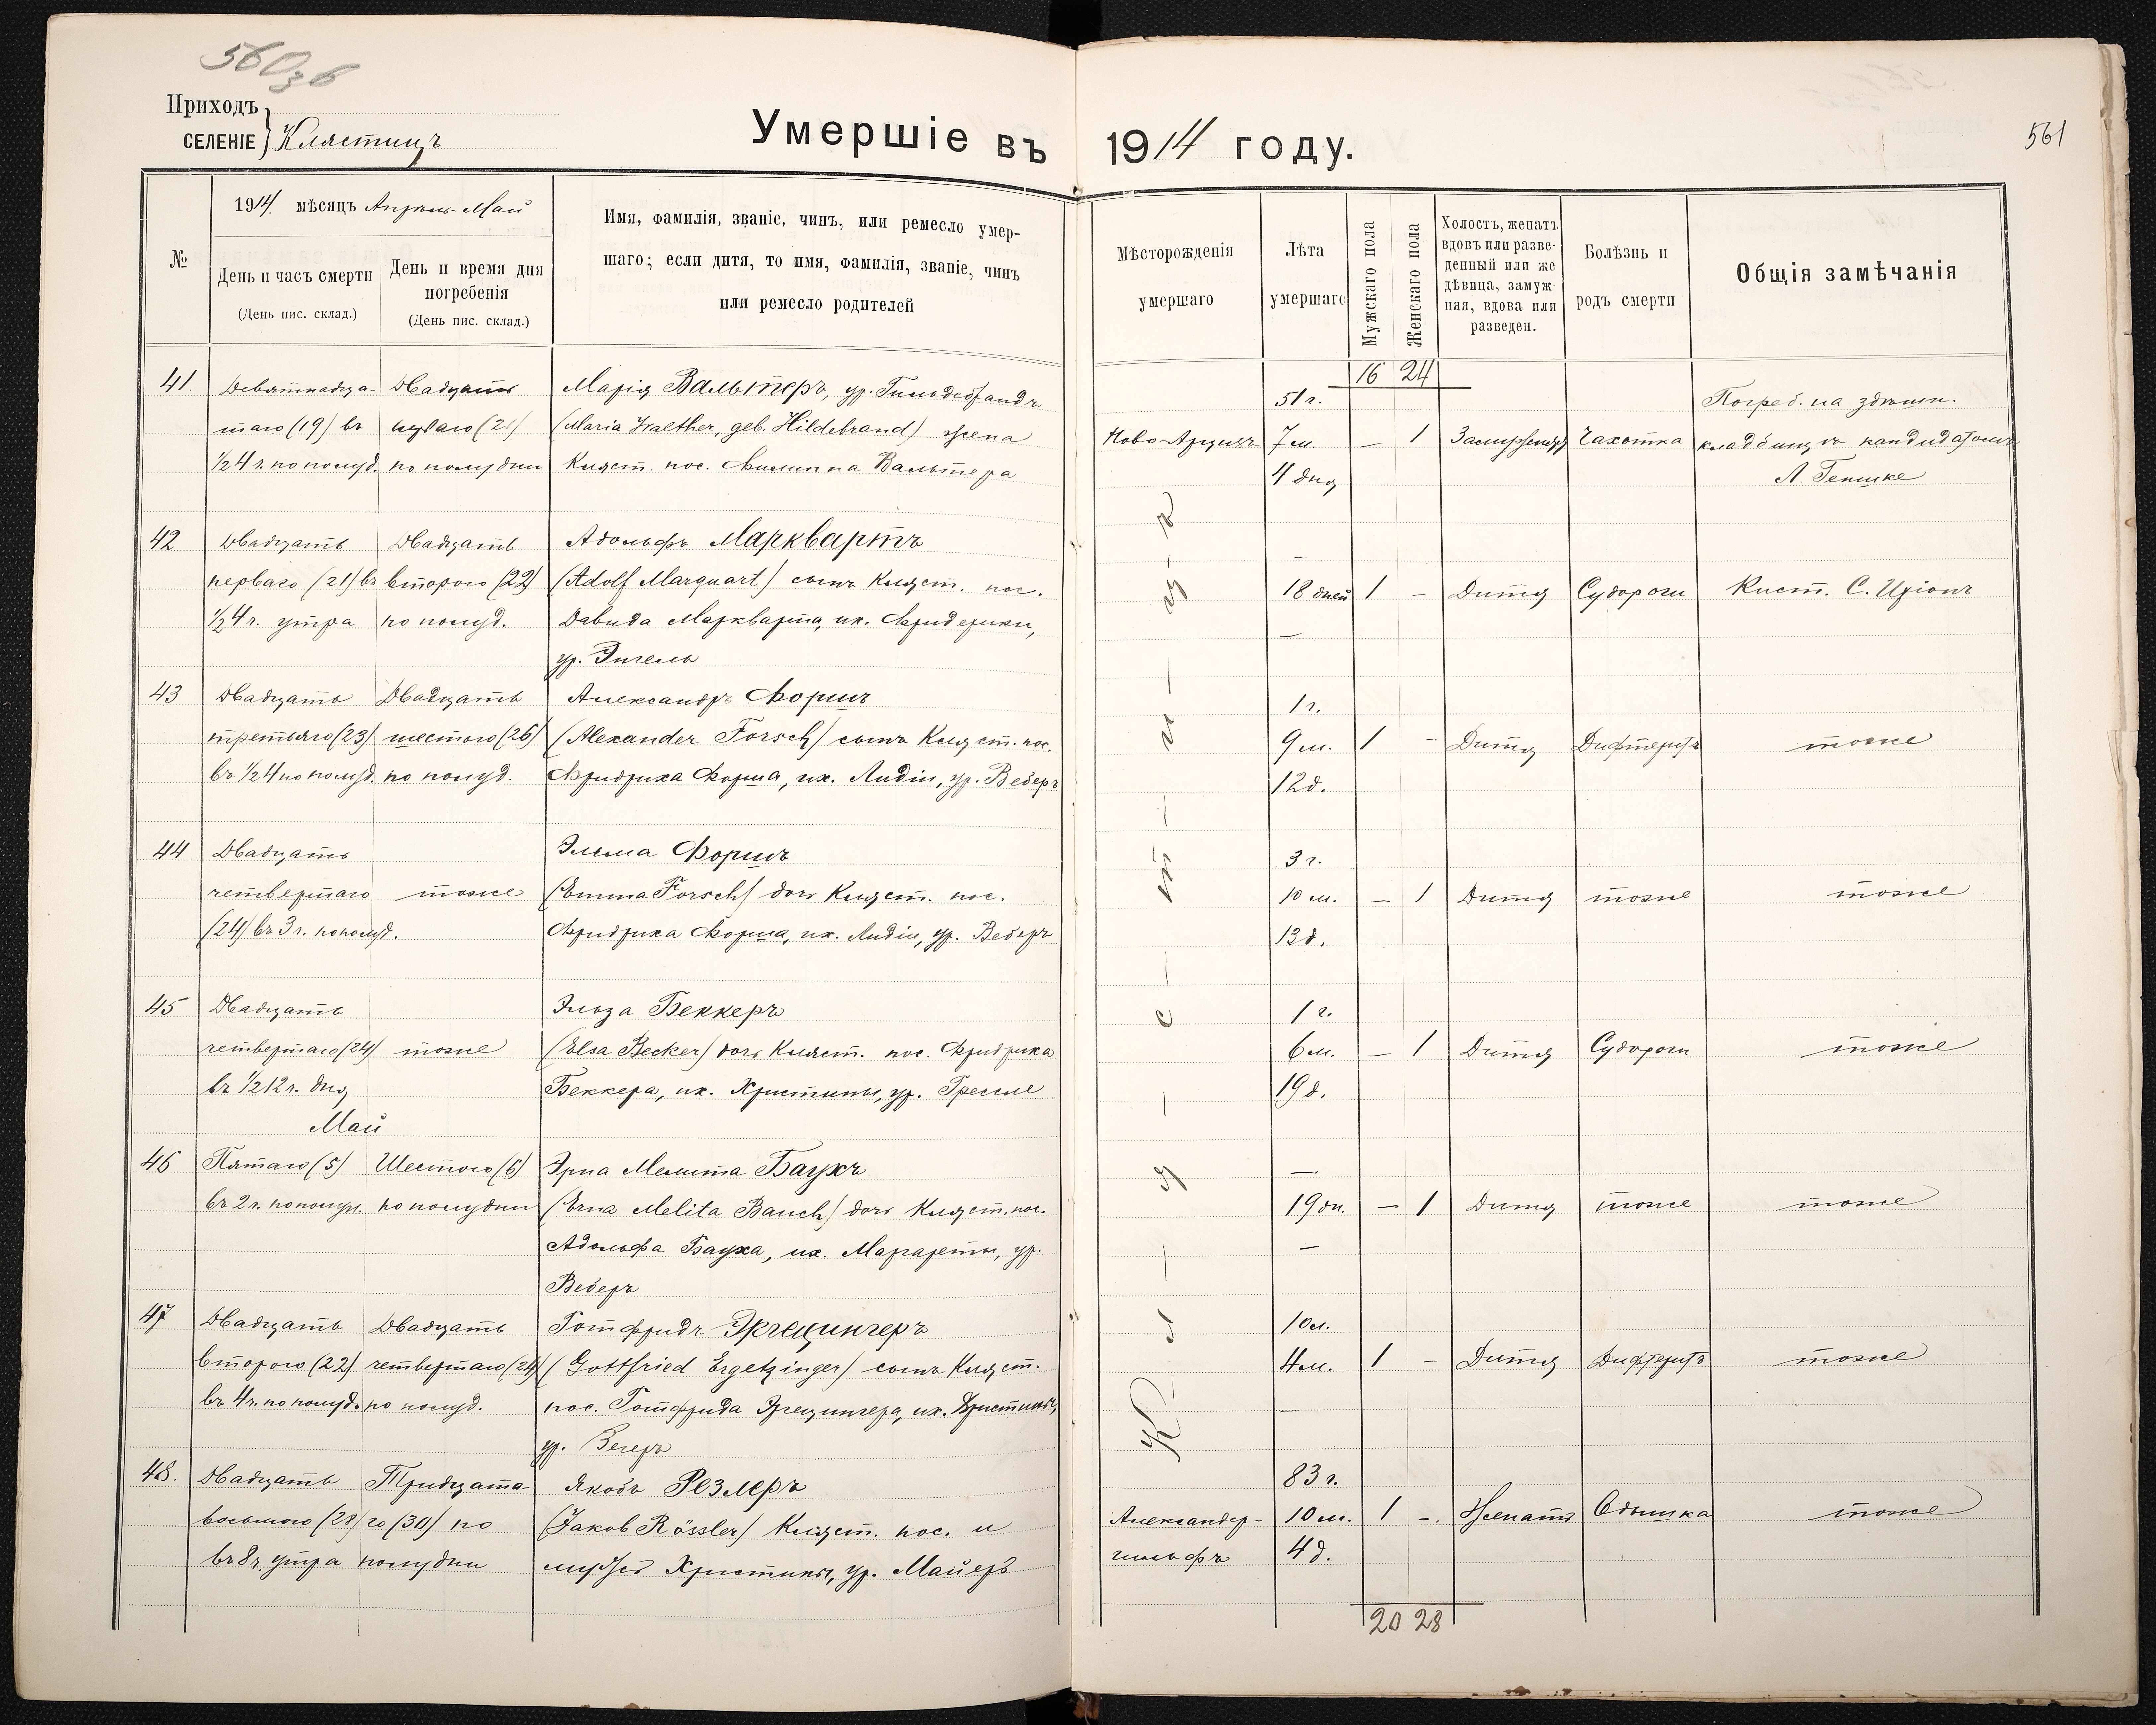 560 зб
561
Приходъ
СЕЛЕНІЕ } Клястицъ
Умершіе въ 1914 году.
№
1914 мѣсяцъ Апрѣль-Май
День и часъ смерти
(День пис. склад.)
День и время дня
погребенія
(День пис. склад.)
Имя, фамилія, званіе, чинъ, или ремесло умер-
шаго; если дитя, то имя, фамилія, званіе, чинъ
или ремесло родителей
Мѣсторожденія
умершаго
Лѣта
умершаго
Мужскаго пола
Женскаго пола
Холостъ, женатъ
вдовъ или разве-
денный или же
дѣвица, замуж-
няя, вдова или
разведен.
Болѣзнь и
родъ смерти
Общія замѣчанія
16 24
41.
Девятнадца-
таго (19) въ
½4 ч. по полуд.
Двадцать
перваго (21)
по полудни
Марія Вальтеръ, ур. Гильдебрандъ
(Maria Walther, geb. Hildebrand) жена
Кляст. пос. Филиппа Вальтера
Ново-Арцизъ
51 г.
7 м.
4 дня
— 1
Замужняя
Чахотка
Погреб. на здѣшн.
кладбищѣ кандидатомъ
А. Геншке
42
Двадцать
перваго (21) въ
½4 ч. утра
Двадцать
второго (22)
по полуд.
Адольфъ Марквартъ
(Adolf Marquart) сынъ Кляст. пос.
Давида Маркварта, и ж. Фридерики,
ур. Энгель
—
18 дней
—
1 —
Дитя
Судороги
Кист. С. Иріонъ
43
Двадцать
третьяго (23)
въ ½4 по полуд.
Двадцать
шестого (26)
по полуд.
Александръ Форшъ
(Alexander Forsch) сынъ Кляст. пос.
Фридриха Форша, и ж. Лидіи, ур. Веберъ
1 г.
9 м.
12 д.
1 —
Дитя
Дифтеритъ
тоже
44
Двадцать
четвертаго
(24) въ 3 ч. по полуд.
тоже
Эмма Форшъ
(Emma Forsch) дочь Кляст. пос.
Фридриха Форша, и ж. Лидіи, ур. Веберъ
3 г.
10 м.
13 д.
— 1
Дитя
тоже
тоже
45
Двадцать
четвертаго (24)
въ ½12 ч. дня
тоже
Эльза Беккеръ
(Elsa Becker) дочь Кляст. пос. Фридриха
Беккера, и ж. Христины, ур. Грессле
1 г.
6 м.
19 д.
— 1
Дитя
Судороги
тоже
Май
46
Пятаго (5)
въ 2 ч. по полуд.
Шестого (6)
по полудни
Эрна Мелита Баухъ
(Erna Melita Bauch) дочь Кляст. пос.
Адольфа Бауха, и ж. Маргареты, ур.
Веберъ
—
19 дн.
—
— 1
Дитя
тоже
тоже
47
Двадцать
второго (22)
въ 4 ч. по полуд.
Двадцать
четвертаго (24)
по полуд.
Готфридъ Эргецингеръ
(Gottfried Ergetzinger) сынъ Кляст.
пос. Готфрида Эргецингера, и ж. Христины,
ур. Зегеръ
10 л.
4 м.
—
1 —
Дитя
Дифтеритъ
тоже
К — л — я — с — т — и — ц — ъ
48.
Двадцать
восьмого (28)
въ 8 ч. утра
Тридцата-
го (30) по
полудни
Якобъ Резлеръ
(Jakob Rössler) Кляст. пос. и
мужъ Христины, ур. Майеръ
Александер-
гильфъ
83 г.
10 м.
4 д.
1 —
Женатъ
Одышка
тоже
20 28